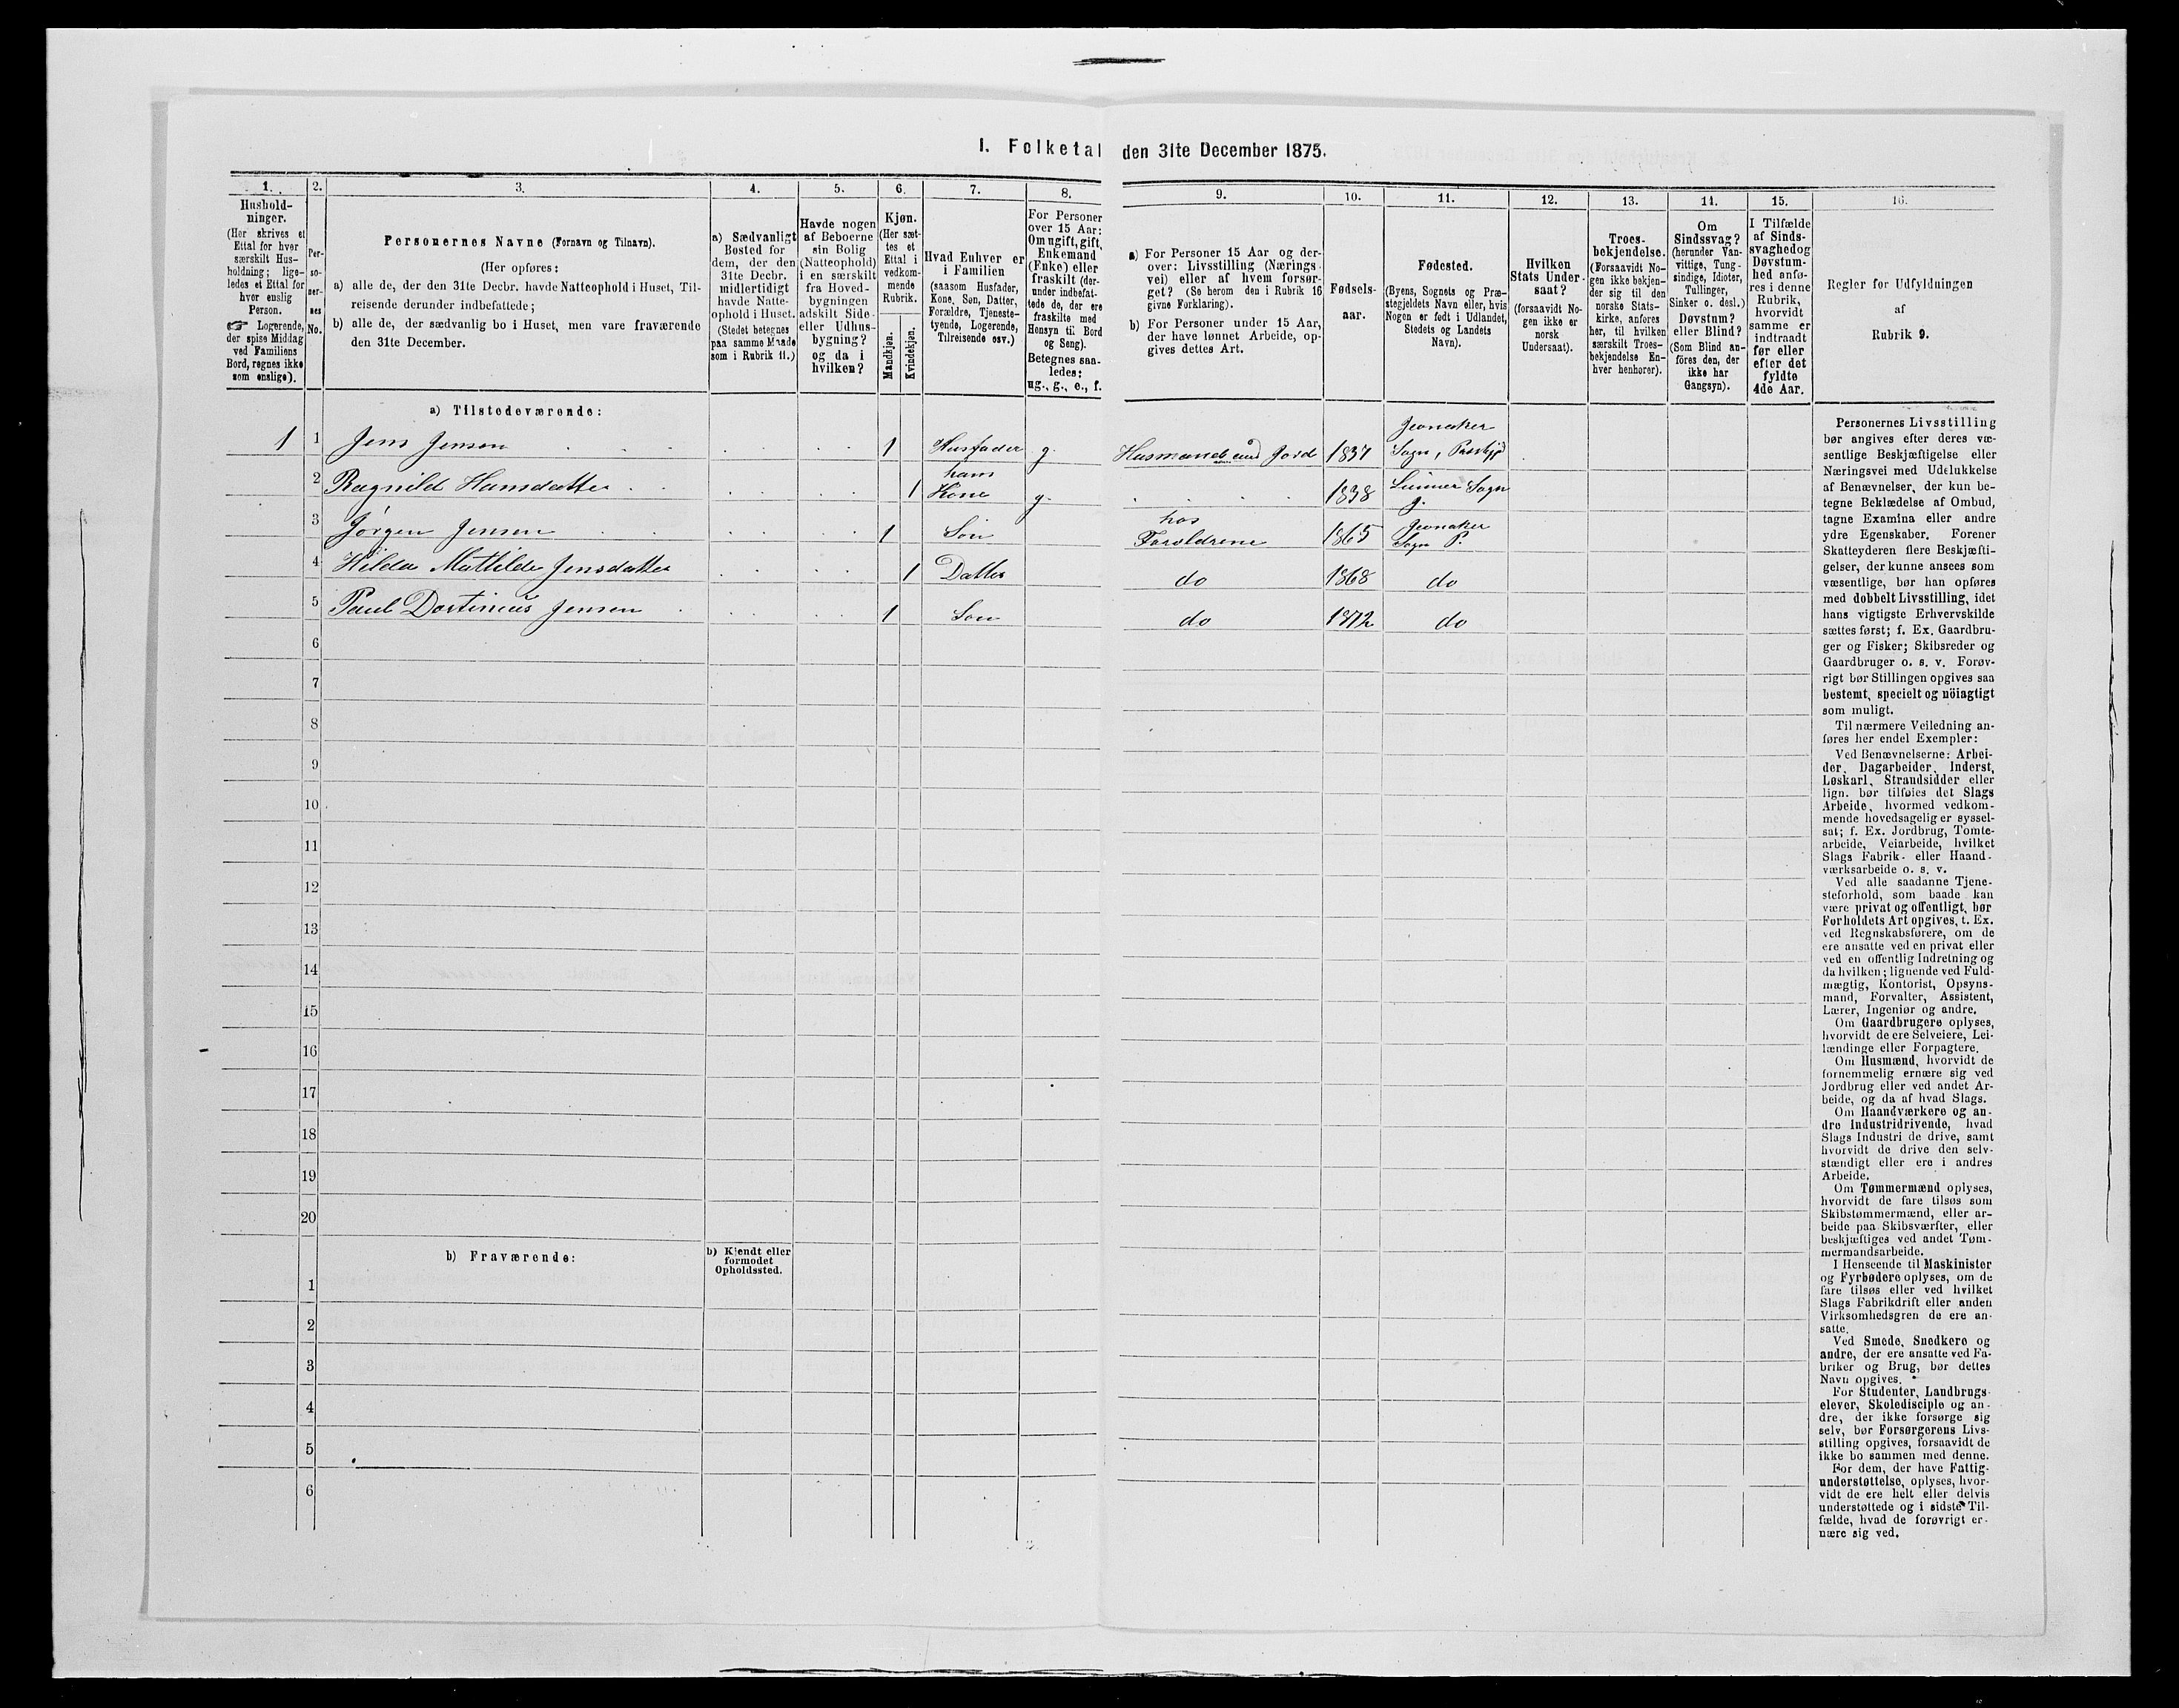 I. Folketal den 31te December 1875.
1.
Hushold-
ninger.
(Her skrives et
Ettal for hver
særskilt Hus-
holdning; lige-
ledes et Ettal for
hver enslig
Person.
☞ Logerende,
der spise Middag
ved Familiens
Bord, regnes ikke
som enslige).
2.
Per-
so-
ner-
nes
No.
3.
Personernes Navne (Fornavn og Tilnavn).
(Her opføres:
a) alle de, der den 31te Decbr. havde Natteophold i Huset, Til-
reisende derunder indbefattede;
b) alle de, der sædvanlig bo i Huset, men vare fraværende
den 31te December.
4.
a) Sædvanligt
Bosted for
dem, der den
31te Decbr.
midlertidigt
havde Natte-
ophold i Huset.
(Stedet betegnes
paa samme Maade
som i Rubrik 11.)
5.
Havde nogen
af Beboerne
sin Bolig
(Natteophold)
i en særskilt
fra Hoved-
bygningen
adskilt Side-
eller Udhus-
bygning?
og da i
hvilken?
6.
Kjøn.
(Her sæt-
tes et
Ettal i
vedkom-
mende
Rubrik.
Mandkjøn.
Kvindekjøn.
7.
Hvad Enhver er
i Familien
(saasom Husfader,
Kone, Søn, Datter,
Forældre, Tjeneste-
tyende, Logerende,
Tilreisende osv.)
8.
For Personer
over 15 Aar:
Om ugift, gift,
Enkemand
(Enke) eller
fraskilt (der-
under indbefat-
tede de, der ere
fraskilte med
Hensyn til Bord
og Seng).
Betegnes saa-
ledes:
ug., g., e., f.
9.
a) For Personer 15 Aar og der-
over: Livsstilling (Nærings-
vei) eller af hvem forsør-
get? (Se herom den i Rubrik 16
givne Forklaring).
b) For Personer under 15 Aar,
der have lønnet Arbeide, op-
gives dettes Art.
10.
Fødsels-
aar.
11.
Fødested.
(Byens, Sognets og Præ-
stegjeldets Navn eller, hvis
Nogen er født i Udlandet,
Stedets og Landets
Navn).
12.
Hvilken
Stats Under-
saat?
(forsaavidt No-
gen ikke er
norsk
Undersaat).
13.
Troes-
bekjendelse.
(Forsaavidt No-
gen ikke bekjen-
der sig til den
norske Stats-
kirke, anføres
her, til hvilken
særskilt Troes-
bekjendelse En-
hver henhører).
14.
Om
Sindssvag?
(herunder Van-
vittige, Tung-
sindige, Idioter,
Tullinger,
Sinker o. desl.)
Døvstum?
eller Blind?
(Som Blind an-
føres den, der
ikke har
Gangsyn).
15.
I Tilfælde
af Sinds-
svaghed og
Døvstum-
hed anfø-
res i denne
Rubrik,
hvorvidt
samme er
indtraadt
før eller
efter det
fyldte
4de Aar.
16.
Regler for Udfyldningen
af
Rubrik 9.
a) Tilstedeværende:
1 1 Jens Jensen 1 Husfader g. Husmand med Jord 1837 Jevnaker Sogn,
2 Ragnild Hansdatter 1 hans Kone g. 1838 Lunner Sogn J.
3 Jørgen Jensen 1 Søn hos Foreldrene 1865 Jevnaker Sogn P.
4 Hilda Mathilde Jensdatter 1 Datter do 1868 do
5 Paul Dortinius Jensen 1 Søn do 1872 do
6
7
8
9
10
11
12
13
14
15
16
17
18
19
20
b) Fraværende:
b) Kjendt eller
formodet
Opholdssted.
1
2
3
4
5
6
Personernes Livsstilling
bør angives efter deres væ-
sentlige Beskjæftigelse eller
Næringsvei med Udelukkelse
af Benævnelser, der kun be-
tegne Beklædelse af Ombud,
tagne Examina eller andre
ydre Egenskaber. Forener
Skatteyderen flere Beskjæfti-
gelser, der kunne ansees som
væsentlige, bør han opføres
med dobbelt Livsstilling, idet
hans vigtigste Erhvervskilde
sættes først; f. Ex. Gaardbru-
ger og Fisker; Skibsreder og
Gaardbruger o. s. v. Forøv-
rigt bør Stillingen opgives saa
bestemt, specielt og nöiagtigt
som muligt.
Til nærmere Veiledning an-
føres her endel Exempler:
Ved Benævnelserne: Arbei-
der, Dagarbeider, Inderst,
Løskarl, Strandsidder eller
lign. bør tilføies det Slags
Arbeide, hvormed vedkom-
mende hovedsagelig er syssel-
sat; f. Ex. Jordbrug, Tomte-
arbeide, Veiarbeide, hvilket
Slags Fabrik- eller Haand-
værksarbeide o. s. v.
Ved alle saadanne Tjene-
steforhold, som baade kan
være privat og offentligt, bør
Forholdets Art opgives, t. Ex.
ved Regnskabsførere, om de
ere ansatte ved en privat eller
ved en offentlig Indretning og
da hvilken; lignende ved Fuld-
mægtig, Kontorist, Opsyns-
mand, Forvalter, Assistent,
Lærer, Ingeniør og andre.
Om Gaardbrugere oplyses,
hvorvidt de ere Selveiere, Lei-
lændinge eller Forpagtere.
Om Husmænd, hvorvidt de
fornemmelig ernære sig ved
Jordbrug eller ved andet Ar-
beide, og da af hvad Slags.
Om Haandværkere og an-
dre Industridrivende, hvad
Slags Industri de drive, samt
hvorvidt de drive den selv-
stændigt eller ere i andres
Arbeide.
Om Tømmermænd oplyses,
hvorvidt de fare tilsøs som
Skibstømmermænd, eller ar-
beide paa Skibsværfter, eller
beskjæftiges ved andet Tøm-
mermandsarbeide.
I Henseende til Maskinister
og Fyrbødere oplyses, om de
fare tilsøs eller ved hvilket
Slags Fabrikdrift eller anden
Virksomhedsgren de ere an-
satte.
Ved Smede, Snedkere og
andre, der ere ansatte ved Fa-
briker og Brug, bør dettes
Navn opgives.
For Studenter, Landbrugs-
elever, Skoledisciple og an-
dre, der ikke forsørge sig
selv, bør Forsørgerens Livs-
stilling opgives, forsaavidt de
ikke bo sammen med denne.
For dem, der have Fattig-
understøttelse, oplyses, hvor-
vidt de ere helt eller delvis
understøttede og i sidste Til-
fælde, hvad de forøvrigt er-
nære sig ved.